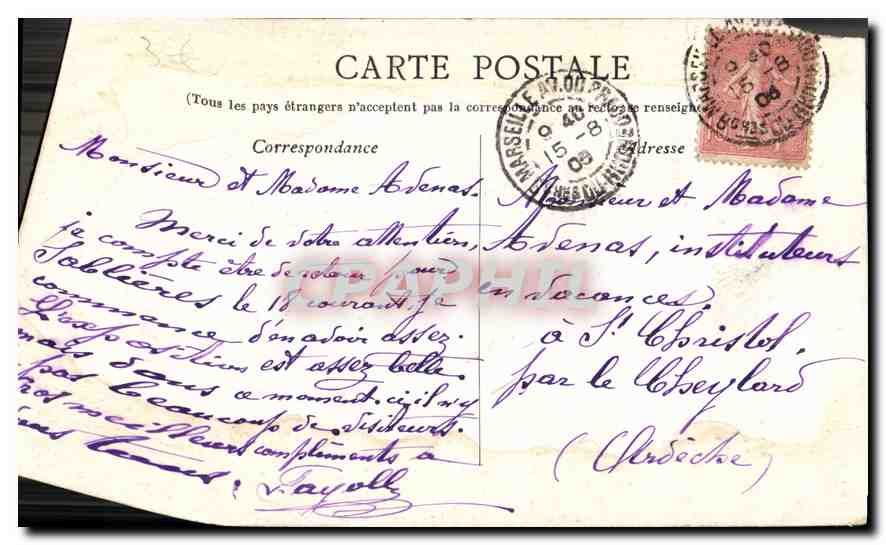 3€
CARTE POSTALE
(Tous les pays étrangers n'acceptent pas la correspondance au recto, se renseigner
Correspondance
Adresse
MARSEILLE AV. DU PRADO
9 40
15-8
06
BCHES DU RHONE
Monsieur et Madame Adenas.
Merci de votre attention,
je compte être de retour pour
Sablières le 18 courant, je
commence d'en avoir assez.
L'exposition est assez belle
mais dans ce moment-ci, il n'y
pas beaucoup de visiteurs.
nos meilleurs compliments à
tous
Fayolle
Monsieur et Madame
Adenas, instituteurs
en vacances
à St Christol,
par le Cheylard
(Ardèche)
CPAPHIL